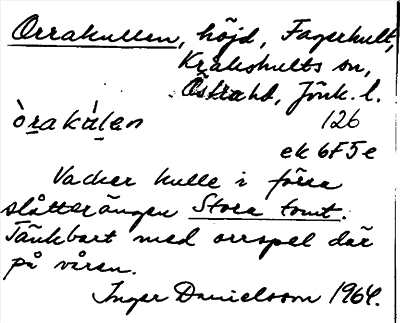 Orrakullen, höjd, Fagerhult,
Kråkshults sn,
Östra hd, Jönk. l.
òrakálen 126
ek 6F5e
Vacker kulle i förra
slåtterängen Stora tomt.
Tänkbart med orrspel där
på våren.
Inger Danielsson 1964.